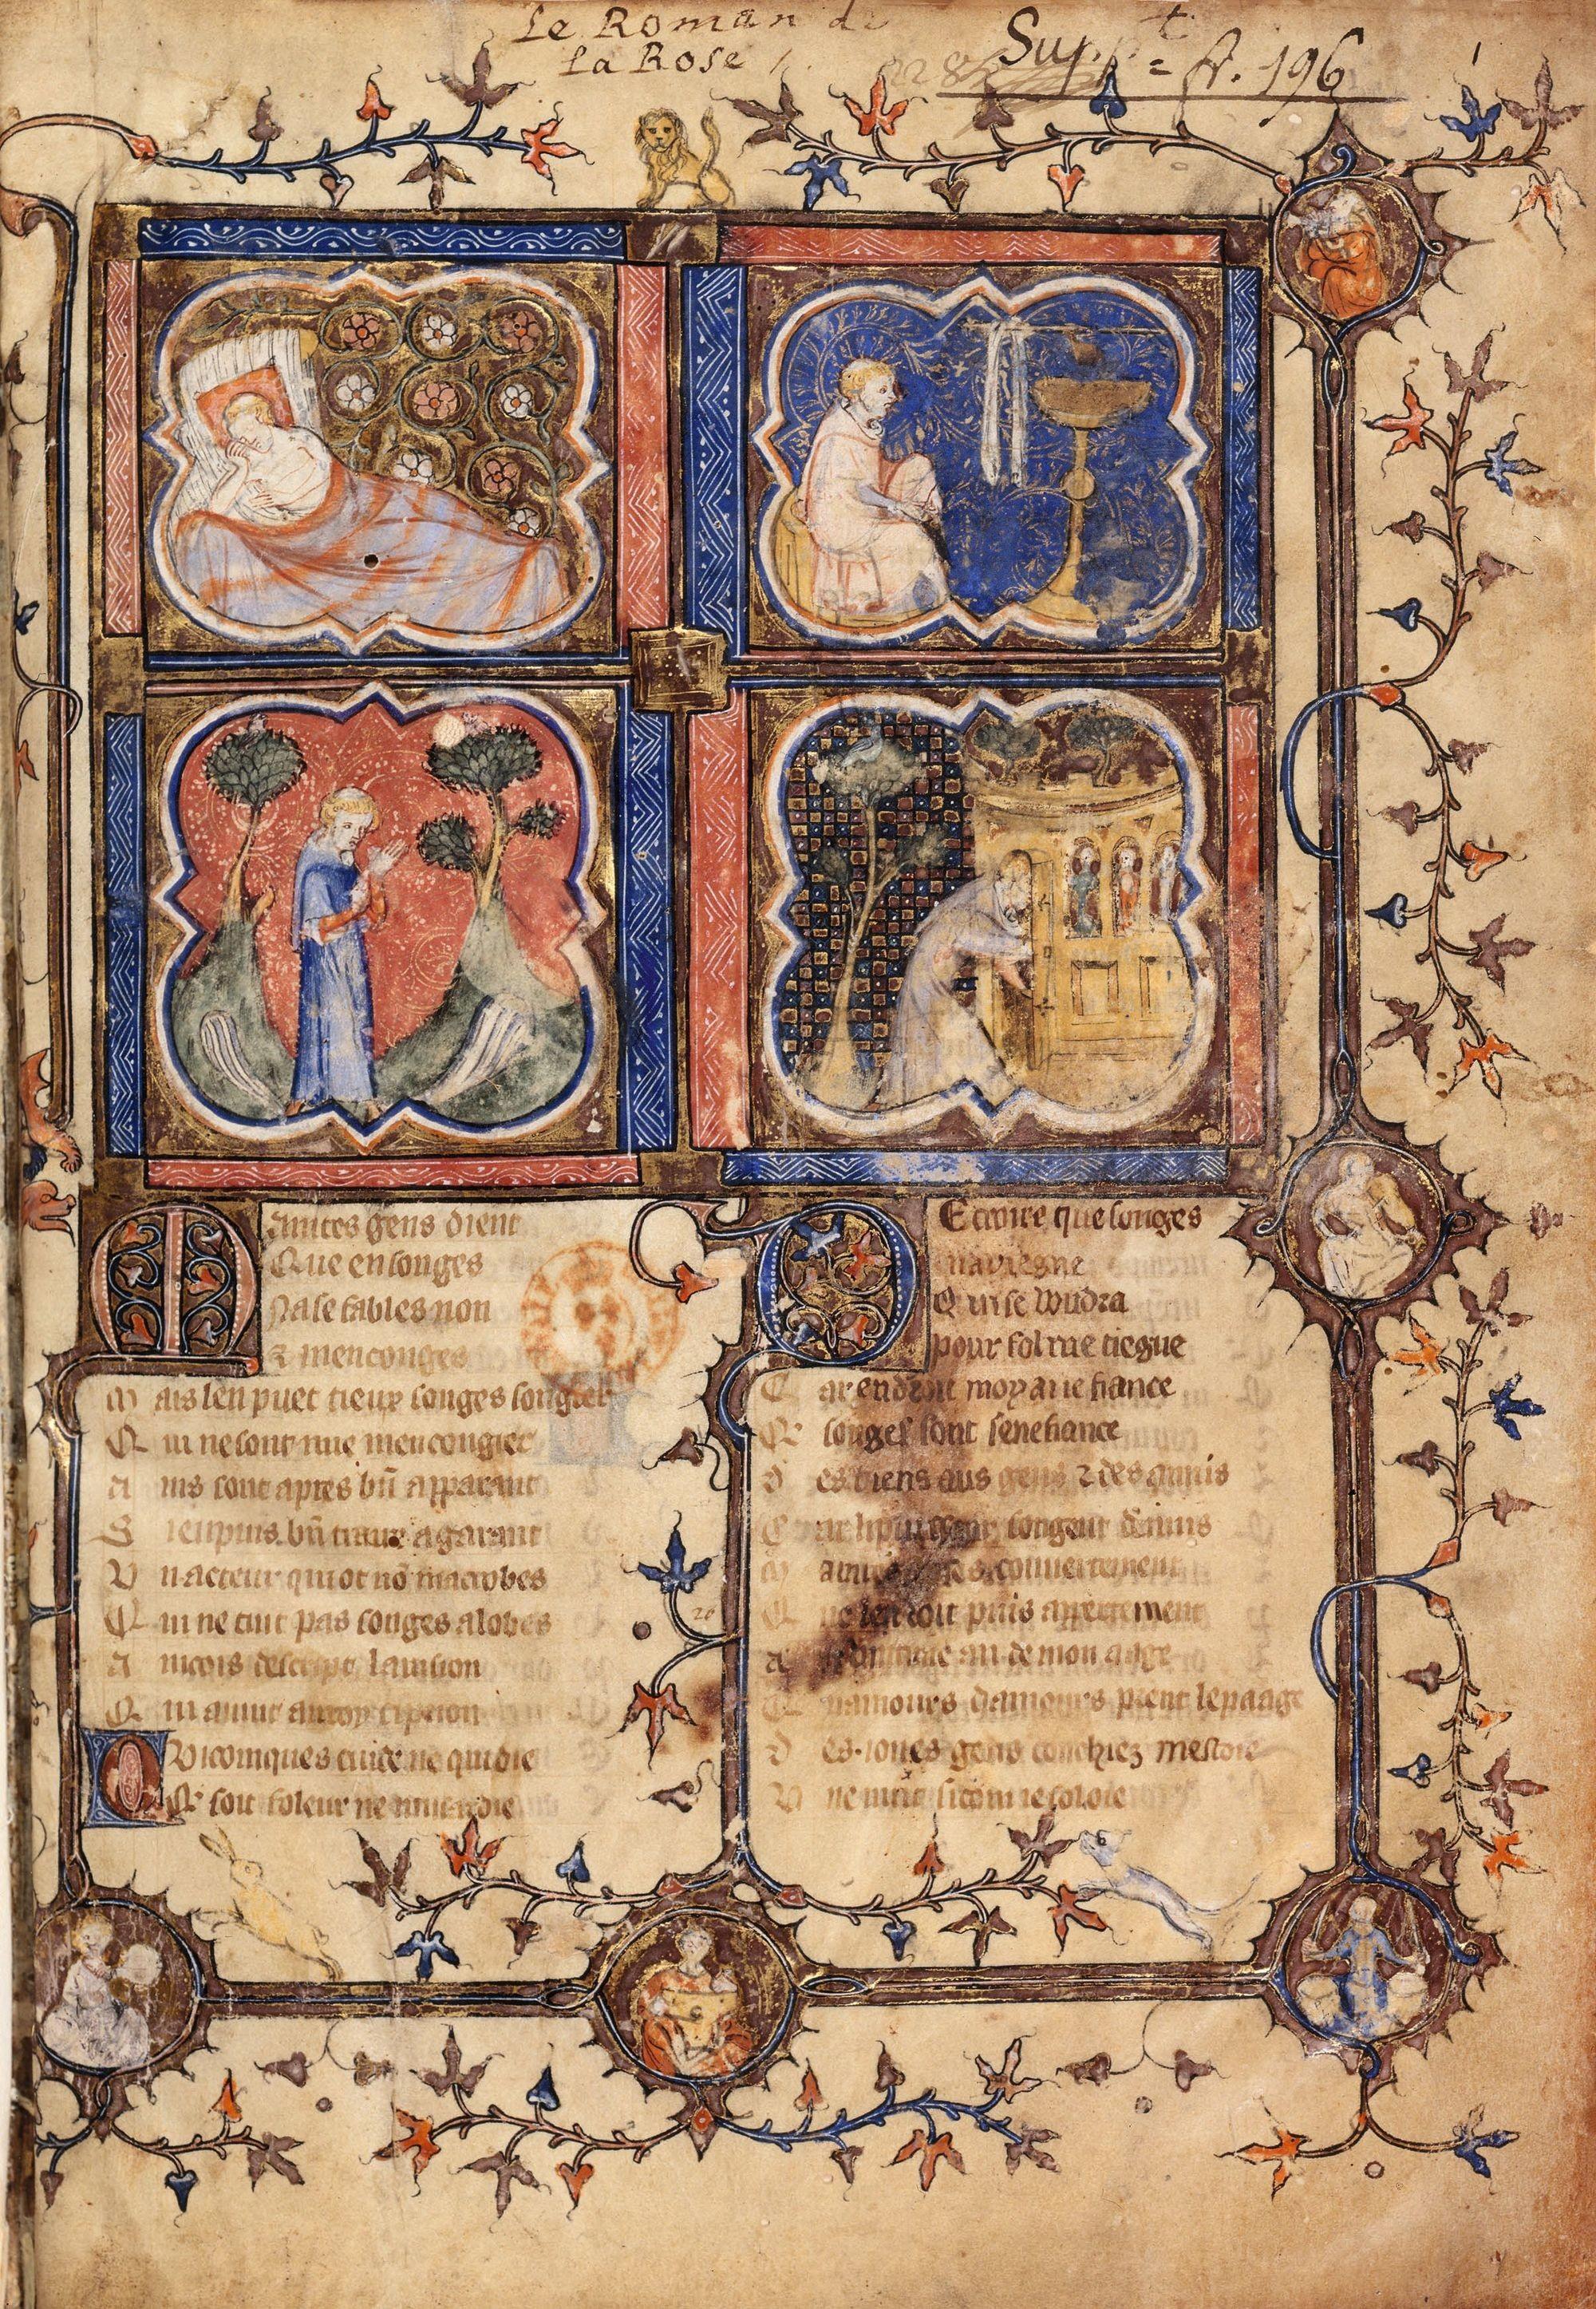 Le Roman de
la Rose
Supp.t fr. 196
Maintes gens dient
Que en songes
Na se fables non
⁊ menconges
Mais len puet tieux songes songier
Qui ne sont mie mencongier
Ains sont apres bn̄ apparant
Si en puis bn̄ traire a garant
Vn acteur qui ot nō macrobes
Qui ne tint pas songes a lobes
Aincois descript lauision
Qui auint au roy cipion
Quiconques cuide ne qui die
Que soit foleur ne musardie
De croire que songes
nauiegne
Qui se voudra
pour fol me tiegne
Car endroit moy ai ie fiance
Que songes sont senefiance
Des biens aus gens ⁊ des anuis
Car li plusieur songent de nuis
Maintes choses couuertement
Que len voit puis appertement
an de mon aage
Quamours prent le paage
Des ioues gens couchiez mestoie
Vne nuit si com ie soloie